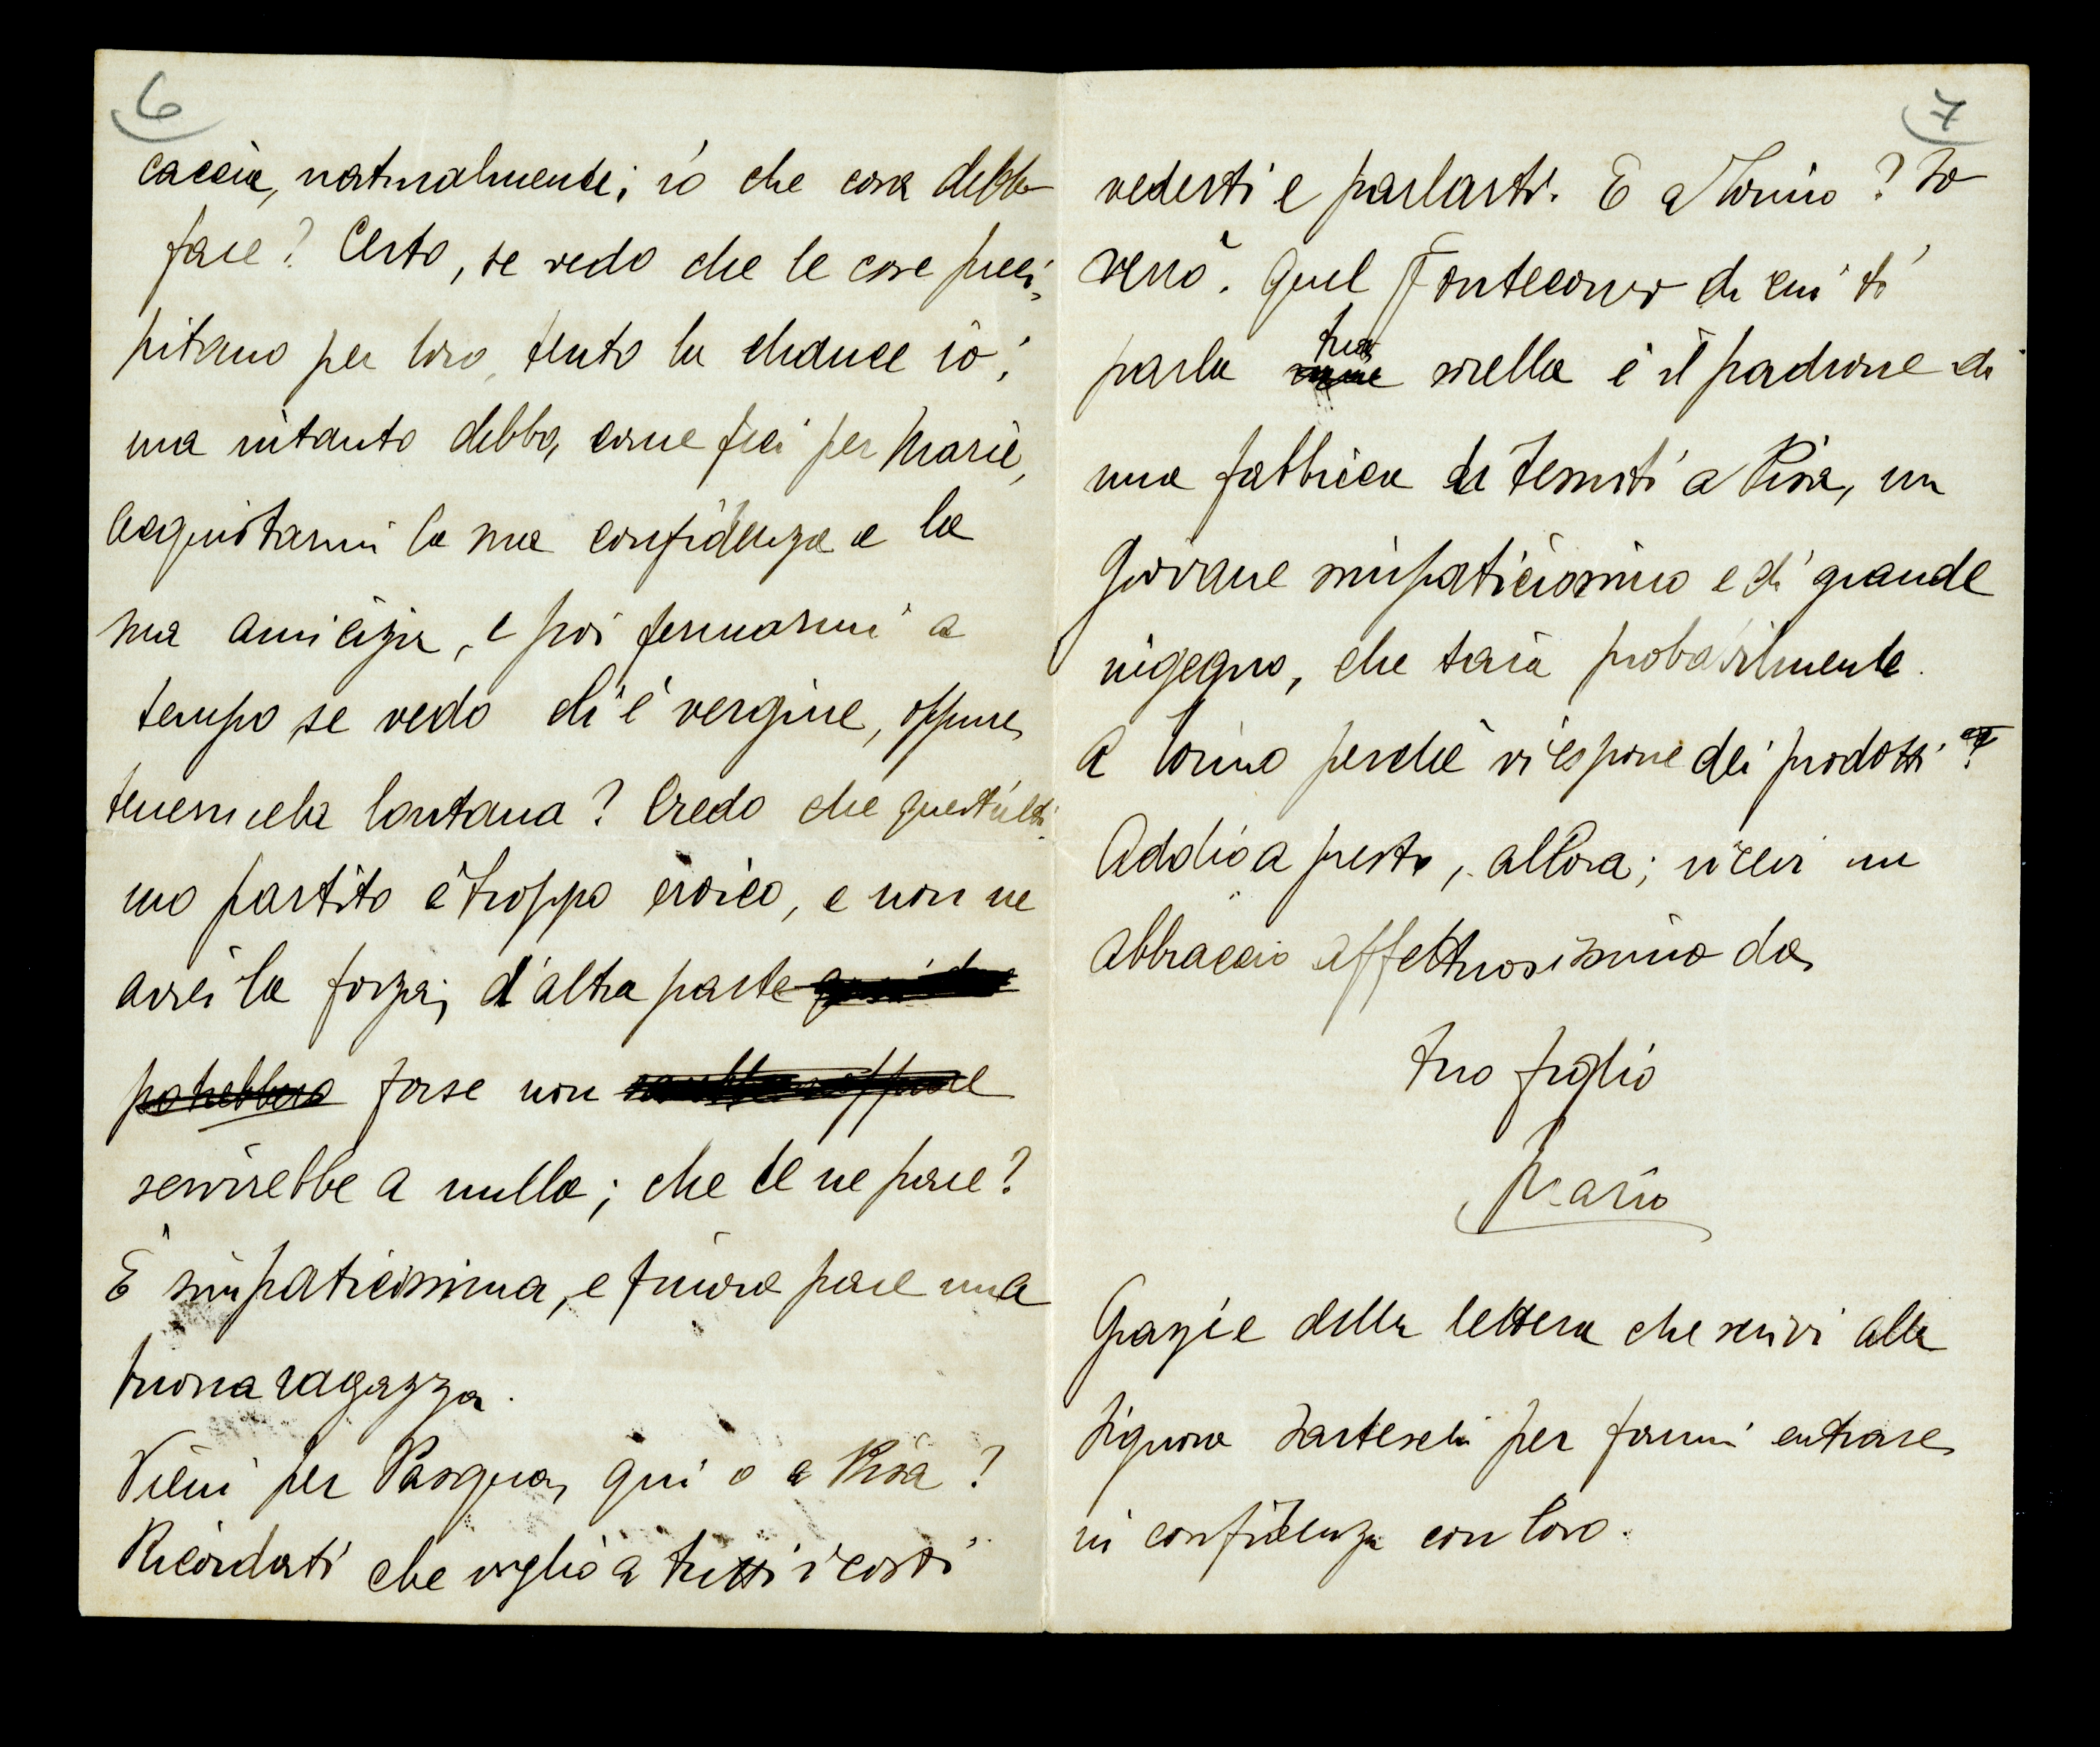 6
caccia, naturalmente; io che cosa debbo
fare? Certo, se vedo che le cose preci-
pitano per loro, tento la chance io;
ma intanto debbo, come feci per Marie,
acquistarmi la sua confidenza e la
sua amicizia, e poi fermarmi a
tempo se vedo ch'è vergine, oppure
tenermela lontana? Credo che quest'ulti-
mo partito è troppo eroico, e non ne
avrei la forza; d'altra parte
potrebbero forse non
servirebbe a nulla; che te ne pare?
È simpaticissima, e finora pare una
buona ragazza.
Vieni per Pasqua, qui o a Pisa?
Ricordati che voglio a tutti i costi
7
vederti e parlarti. E a Torino? Io
verrò. Quel Pontecorvo di cui ti
parla tua sorella è il padrone di
una fabbrica di tessuti a Pisa, un
giovane simpaticissimo e di grande
ingegno, che sarà probabilmente
a Torino perchè vi espone dei prodotti.
Addio a presto, allora; ricevi un
abbraccio affettuosissimo da
tuo figlio
Mario
Grazie della lettera che scrivi alla
signora per farmi entrare
in confidenza con loro.